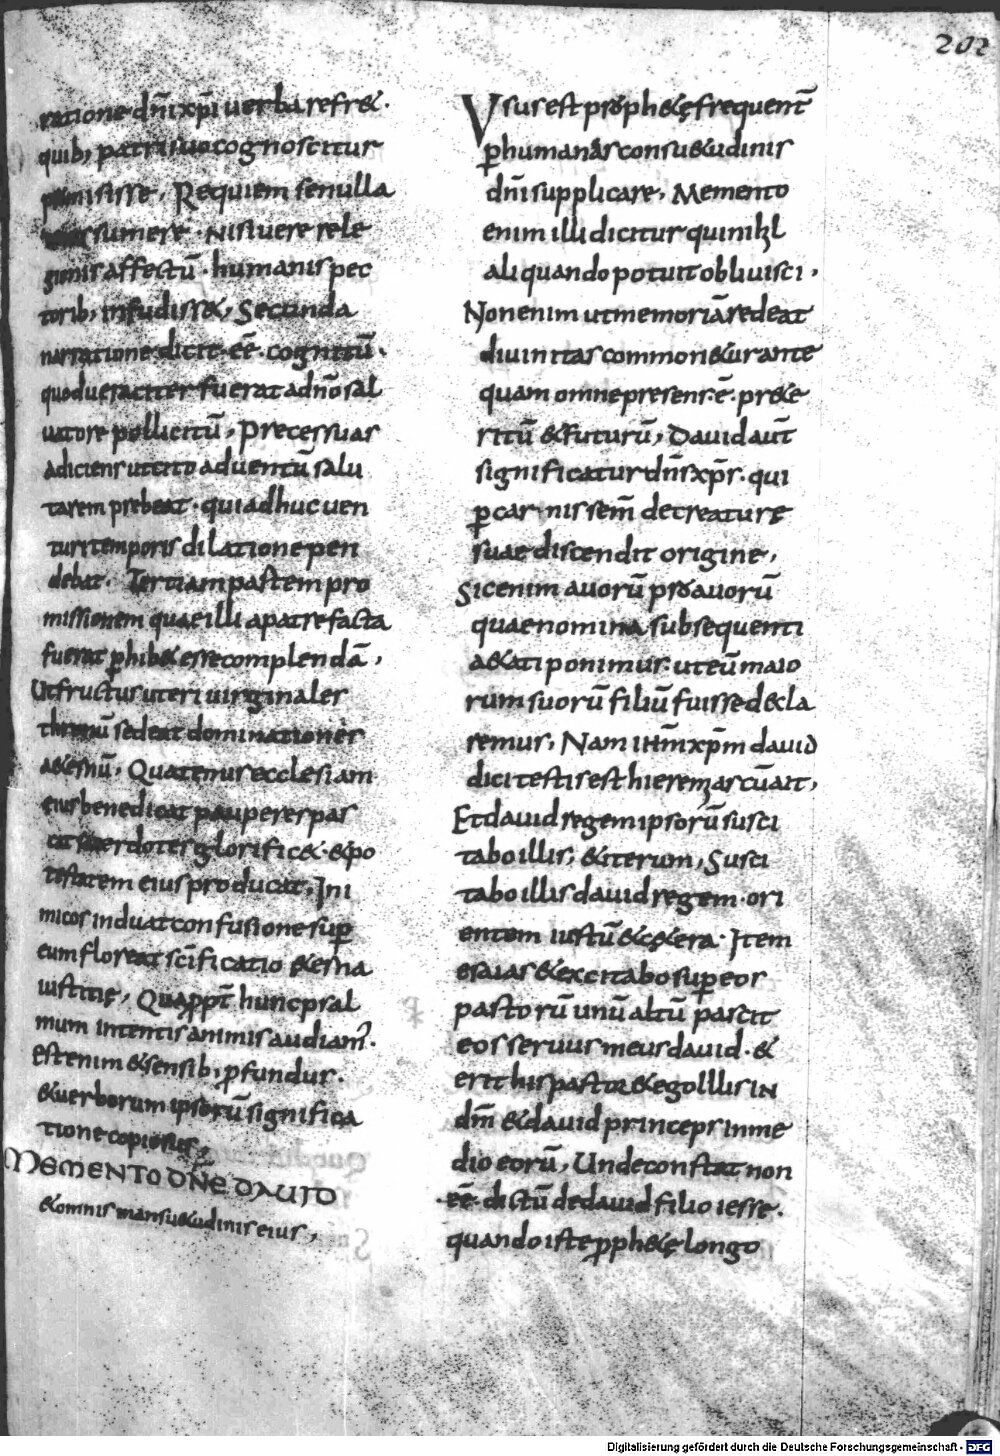 202
ratione dn̄i xp̄i uerba refr&.
quib; patri suo cognoscitur
promisisse, Requiem se nulla
sumere · nisi uere rele
gionis affectū · humanis pec
torib; infudiss&, Secunda
narratione dicit · eē · cognitū ·
quod ueraciter fuerat ad nr̄o sal
uatore pollicitū, Preces suas
adiciens ut cito aduentū salu
tarem prebeat · qui adhuc uen
turi temporis dilatione pen
debat · Tertiam partem pro
missionem quae illi a patre facta
fuerat ꝑhib& esse complendā,
Ut fructus uteri uirginales
thronū sedeat dominationes
a&ernū, Quatenus ecclesiam
eius benedicat pauperes pas
cat sacerdotes glorific& · & po
testatem eius producat, Ini
micos induat confusione suꝑ
eum floreat sc̄ificatio &erna
iustitię, Quapp̄t hunc psal
mum intentis animis audiam᾿.
est enim & sensib; ꝓfundus.
& uerborum ipsorū significa
tione copiosus,
MEMENTO DN̄E DAUID
& omnis mansu&udinis eius,
Usus est proph&ę frequent̄
ꝑ humanas consu&udinis
dn̄i supplicare, Memento
enim illi dicitur qui nihil
aliquando potuit obliuisci,
Non enim ut memoriā redeat
diuinitas common&ur ante
quam omne presens · ē · pr&e
ritū & futurū, Dauid aūt
significatur dn̄s xp̄s · qui
ꝑ carnis sem̄ de creature
suae discendit origine,
Sic enim auorū proauorū
quae nomina subsequenti
a&ati ponimus · ut eū maio
rum suorū filiū fuisse decla
remus, Nam ihm̄ xp̄m dauid
dici testis est hieremias cū ait,
Et dauid regem ipsorū susci
tabo illis, & iterum, Susci
tabo illis dauid regem · ori
entem iustū & c&era · Item
esaias & excitabo suꝑ eos
pastorū unū aliū pascit
eos seruus meus dauid · &
erit his pastor & ego illis in
dm̄ & dauid princeps in me
dio eorū, Unde constat non
eē · dictū de dauid filio iesse.
quando iste ꝓph&ę longo
Digitalisierung gefördert durch die Deutsche Forschungsgemeinschaft - DFG